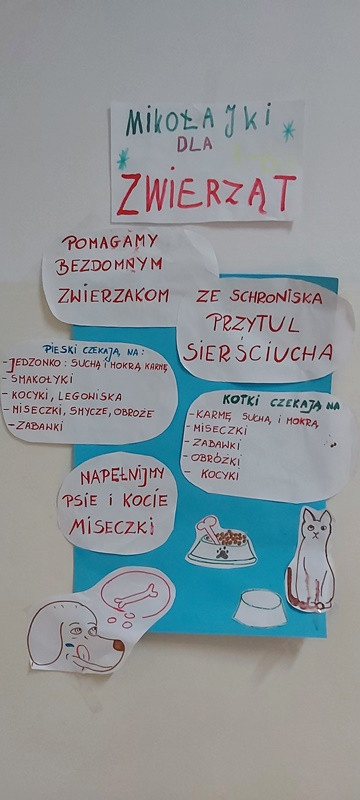 MIKOŁAJKI
DLA
ZWIERZĄT
POMAGAMY
BEZDOMNYM
ZWIERZAKOM
ZE SCHRONISKA
PRZYTUL
SIERŚCIUCHA
PIESKI CZEKAJĄ NA:
- JEDZONKO: SUCHĄ I MOKRĄ KARMĘ
- SMAKOŁYKI
- KOCYKI, LEGOWISKA
- MISECZKI, SMYCZE, OBROŻE
- ZABAWKI
KOTKI CZEKAJĄ NA
- KARMĘ SUCHĄ I MOKRĄ
- MISECZKI
- ZABAWKI
- OBRÓŻKI
- KOCYKI
NAPEŁNIJMY
PSIE I KOCIE
MISECZKI